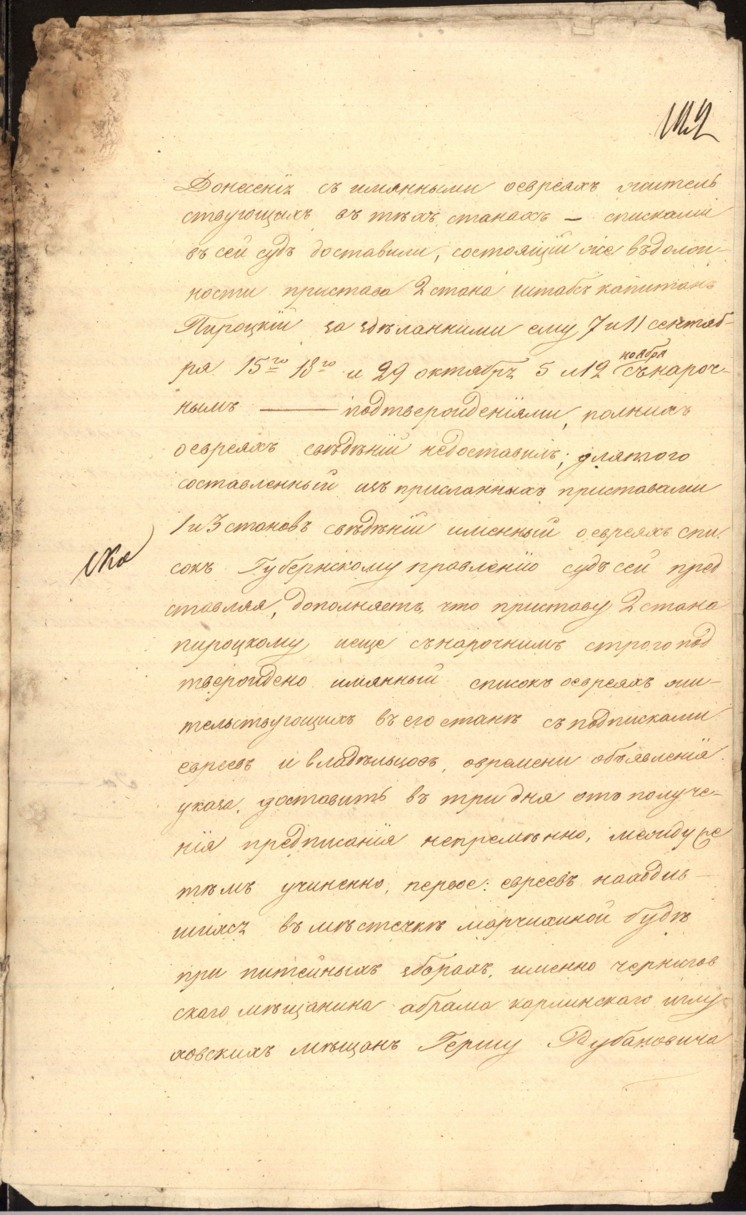 122
Донесенiи съ имянными оевреяхъ житель
ствующихъ въ тѣхъ станахъ — списками
въ сей судъ доставили, состоящiй же въдолж-
ности пристава 2 стана штабсъ капитанъ
Пироцкiй за здѣланними ему 7 и 11 сентяб-
ря 15го 18го и 29 октября 5 и 12 ноября съ нароч-
нымъ — подтвержденiями, полнихъ
оевреяхъ свѣденiй недоставилъ; для того
составленный изъ присланныхъ приставами
1 и 3 становъ свѣденiй именный оевреяхъ спи-
сокъ Губернскому правленiю судъ сей пред
ставляя, дополняетъ, что приставу 2 стана
пироцкому иеще съ нарочнимъ строго под
тверждено имянный списокъ оевреяхъ жи-
тельствующихъ въ его станѣ съ подписками
евреевъ и владѣльцовъ, овремени объявленiя
указа, доставить въ три дня отъ получе-
нiя предписанiя непремѣнно, между се
тѣмъ учиненно, первое: евреевъ находив-
шихся въ мѣстечкѣ марчихиной будѣ
при питейныхъ зборахъ, именно чернигов
скаго мѣщанина абрама карлинскаго иглу-
ховскихъ мѣщанъ Гершу Рубановича